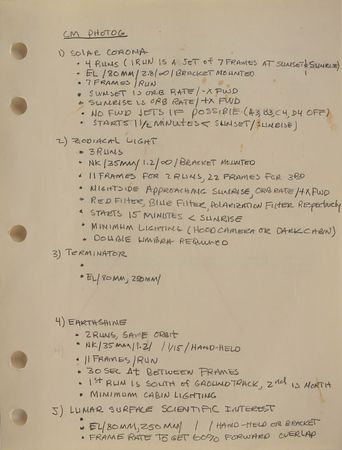 CM PHOTOG
1) SOLAR CORONA
• 4 RUNS (1 RUN IS A SET OF 7 FRAMES AT SUNSET & SUNRISE)
• EL/80MM/2.8/∞/BRACKET MOUNTED
• 7 FRAMES/RUN
• SUNSET IS ORB RATE/-X FWD
• SUNRISE IS ORB RATE/+X FWD
• NO FWD JETS IF POSSIBLE (A3, B3, C4, D4 OFF)
• STARTS 1 1/2 MINUTES < SUNSET/SUNRISE)
2) ZODIACAL LIGHT
• 3 RUNS
• NK/35MM/1.2/∞/BRACKET MOUNTED
• 11 FRAMES FOR 2 RUNS, 22 FRAMES FOR 3RD
• NIGHTSIDE APPROACHING SUNRISE, ORB RATE/+X FWD
• RED FILTER, BLUE FILTER, POLARIZATION FILTER RESPECTIVELY
• STARTS 15 MINUTES < SUNRISE
• MINIMUM LIGHTING (HOOD CAMERA OR DARK CABIN)
• DOUBLE UMBRA REQUIRED
3) TERMINATOR
•
• EL/80MM, 250MM/
4) EARTHSHINE
• 2 RUNS, SAME ORBIT
• NK/35MM/1.2/ 1/15/HAND-HELD
• 11 FRAMES/RUN
• 30 SEC Δt BETWEEN FRAMES
• 1ST RUN IS SOUTH OF GROUNDTRACK, 2nd IS NORTH
• MINIMUM CABIN LIGHTING
5) LUNAR SURFACE SCIENTIFIC INTEREST
•
• EL/80MM, 250MM/ / /HAND-HELD OR BRACKET
• FRAME RATE TO GET 60% FORWARD OVERLAP